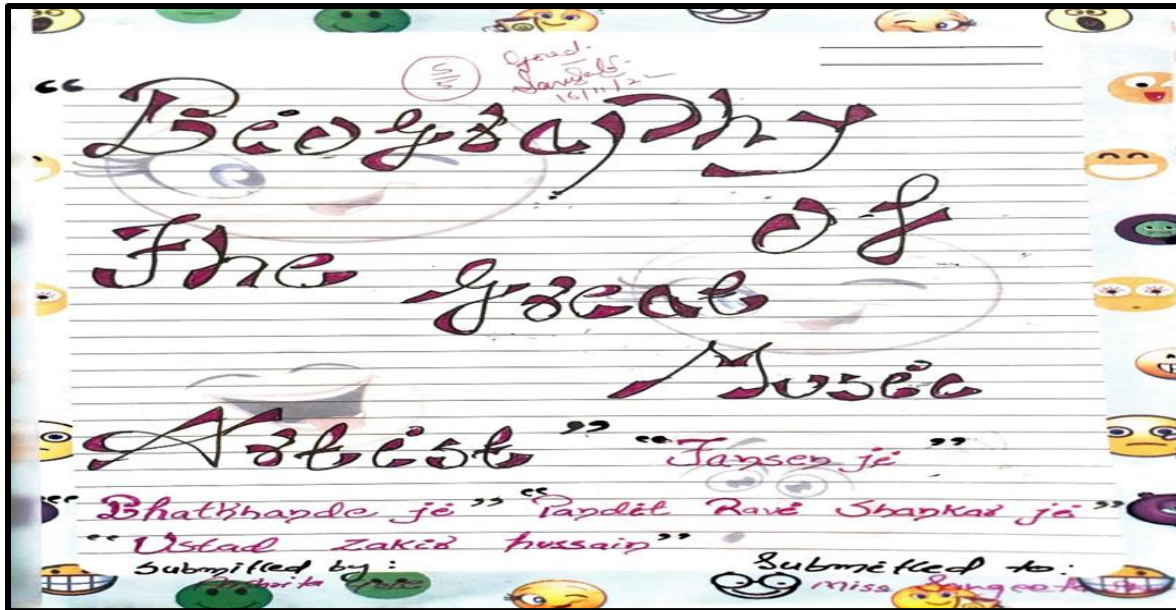 5/5 Good.
16/11/22
“Biography
of
The
Great
Music
Artist” “Tansen ji”
“Bhatkhande ji” “Pandit Ravi Shankar ji”
“Ustad Zakir hussain”
Submitted by : Submitted to :
Miss Sangeeta